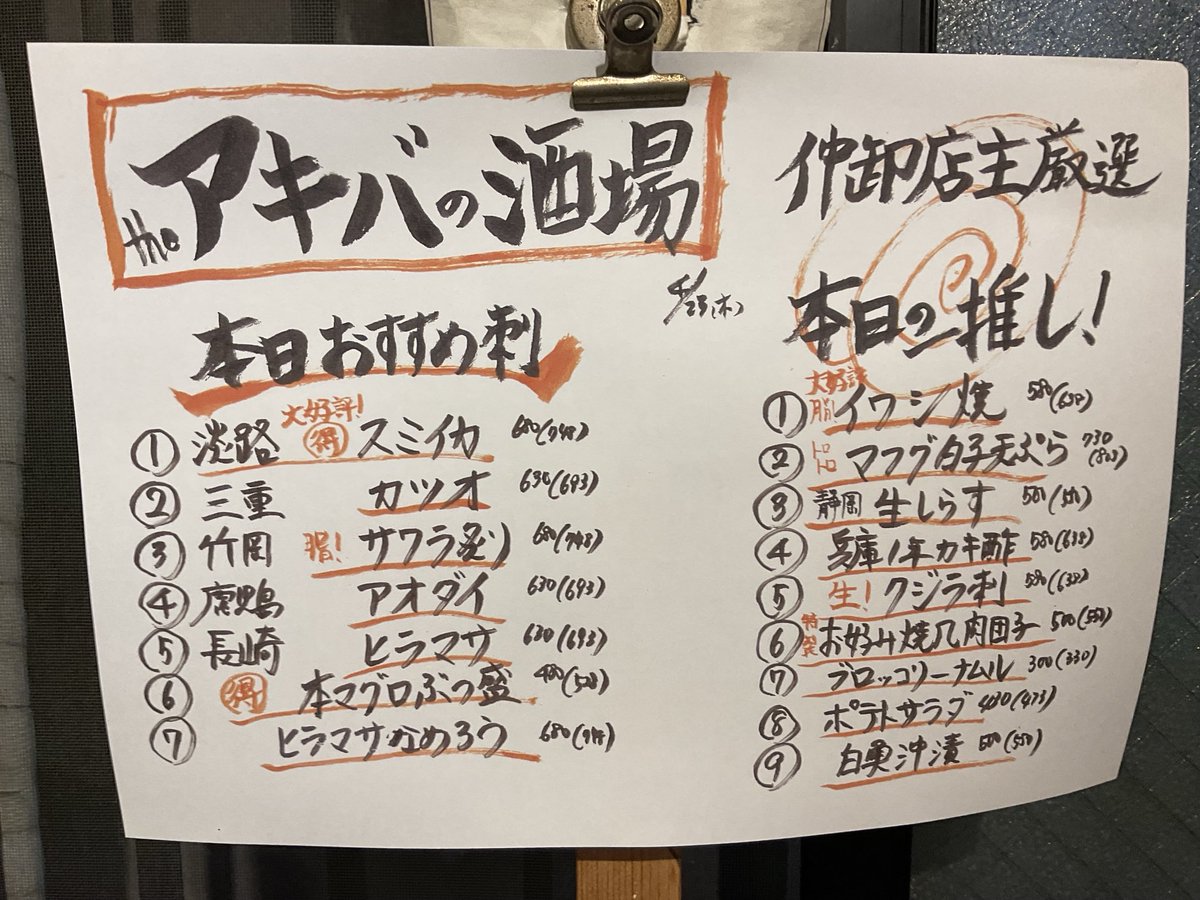 the アキバの酒場
4/23(木)
本日おすすめ刺
① 淡路 大好評! 得 スミイカ 680(748)
② 三重 カツオ 630(693)
③ 竹岡 脂! サワラ炙り 680(748)
④ 鹿児島 アオダイ 630(693)
⑤ 長崎 ヒラマサ 630(693)
⑥ 得 本マグロぶつ盛 480(528)
⑦ ヒラマサなめろう 680(748)
仲卸店主厳選
本日の推し!
① 大好評 脂! イワシ焼 580(638)
② トロトロ マフグ白子天ぷら 730(803)
③ 静岡 生しらす
④ 兵庫1年カキ酢 580(638)
⑤ 生! クジラ刺 580(638)
⑥ 特製 お好み焼凡肉団子 500(550)
⑦ ブロッコリーナムル 300(330)
⑧ ポテトサラダ 430(473)
⑨ 白東沖漬 500(550)